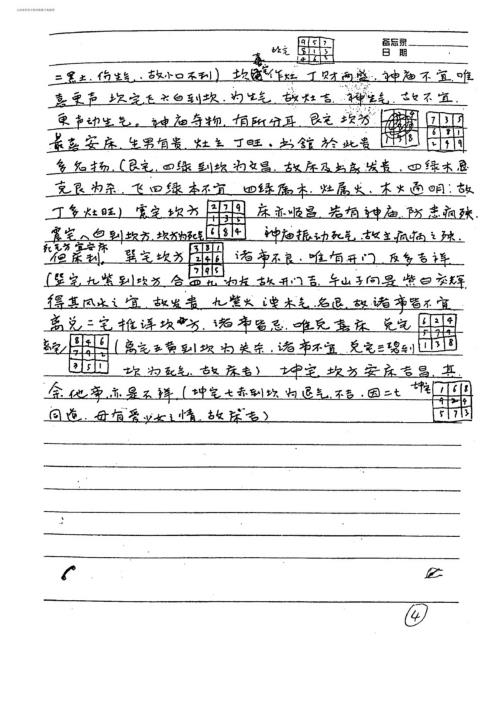 备忘录
日期
坎宅
9 5 7
8 1 3
4 6 2
二黑土,伤生气,故小口不利)坎宅作灶丁财两盛,神庙不宜,唯
喜更声,坎宅飞六白到坎,为生气,故灶吉,神生气,故不宜
更声动生气。神庙夺物,有所分耳,艮宅坎方
7 3 5
6 8 1
2 4 9
最喜安床,生男有贵,灶主丁旺。书馆於此贵
多名扬,(艮宅,四绿到坎为文昌,故床及书房发贵,四绿木恶
克艮为杀,飞四绿本不宜,四绿属木,灶属火,木火通明,故
丁多灶旺)震宅坎方
2 7 9
1 3 5
6 8 4
床亦顺昌,若有神庙,防患疯残
震宅八白到坎方,坎方为死气
神庙振动死气,故主疯病之残
死气方宜安床
但床利。巽宅坎方
3 8 1
2 4 6
7 9 5
诸事不良,唯有开门,反多吉祥
(巽宅九紫到坎方,合四九为友,故开门吉,午山子向是紫白交辉
得其风水之宜,故发贵,九紫火洩木气,名退,故诸事皆不宜
离兑二宅推详坎方,诸事皆忌,唯兑喜床,兑宅
6 2 4
5 7 9
1 3 8
离宅
8 4 6
7 9 2
3 5 1
(离宅五黄到坎为关杀,诸事不宜,兑宅三碧到
坎为死气,故床吉)坤宅坎方安床吉昌,其
余他事亦是不祥,(坤宅七赤到坎为退气,不吉,因二七
坤宅
1 6 8
9 2 4
5 7 3
同道,母有爱少女之情,故床吉)
④